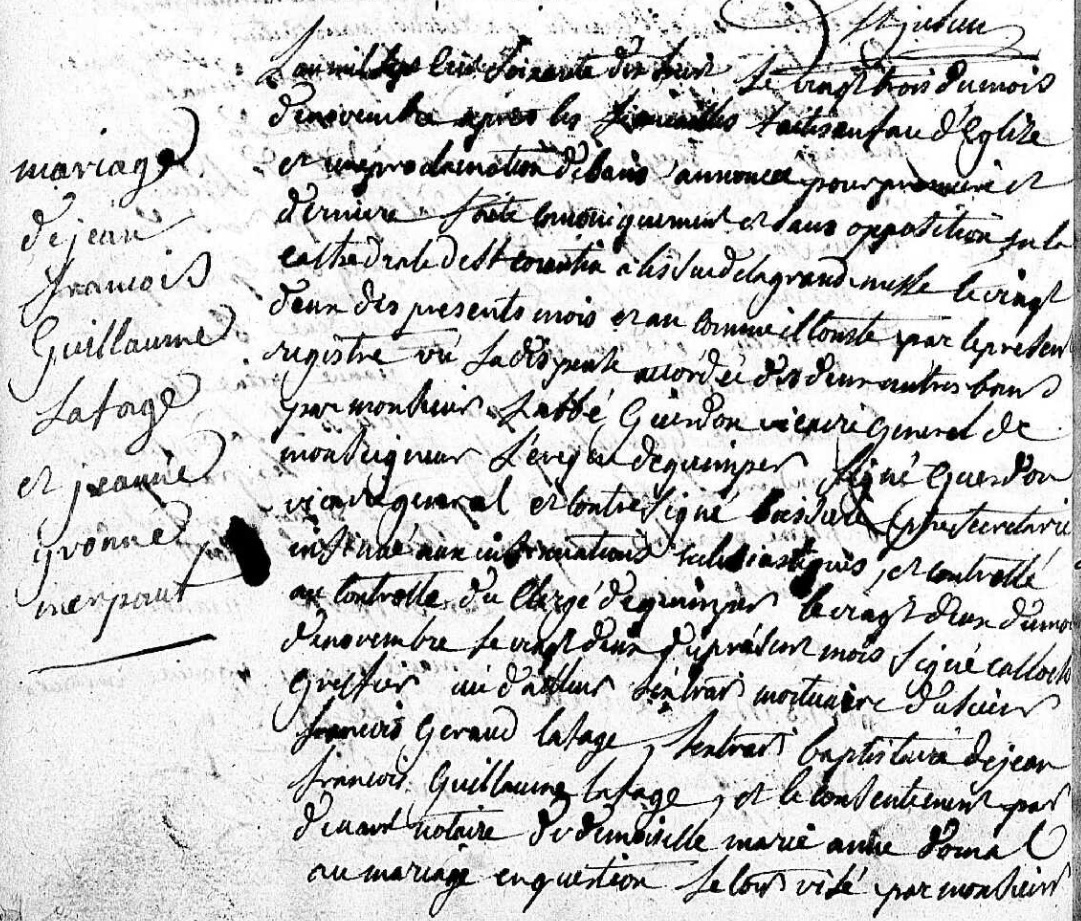 St julien
mariage
de jean
francois
Guillaume
Lafage
et jeanne
yvonne
merpaut
L an mil sept cent soixante dix huit le vingt trois du mois
de novembre apres les fiancailles faites en face d'Eglise
et une proclamation de bans annoncee pour premiere et
derniere faite canoniquement et sans opposition en la
cathedrale de St corentin a l issue de la grand messe le vingt
deux des presents mois et an comme il conste par le present
registre vû la dispense accordée des deux autres bans
par monsieur L'abbé Guerdon vicaire General de
monseigneur L'eveque de quimper signé Guerdon
vicaire general et contresigné boissiere ptre secretaire
insinué aux insinuations eclesiastiques, et controllé
au controlle du clergé de quimper le vingt deux du mois
de novembre le vingt deux du présent mois signé calloch
greffier vû d'ailleurs l'extrait mortuaire du sieur
francois Geraud lafage, l'extrait baptistaire de jean
francois Guillaume lafage, et le consentement par
devant notaire de demoiselle marie anne dornal
au mariage en question le tout visé par monsieur